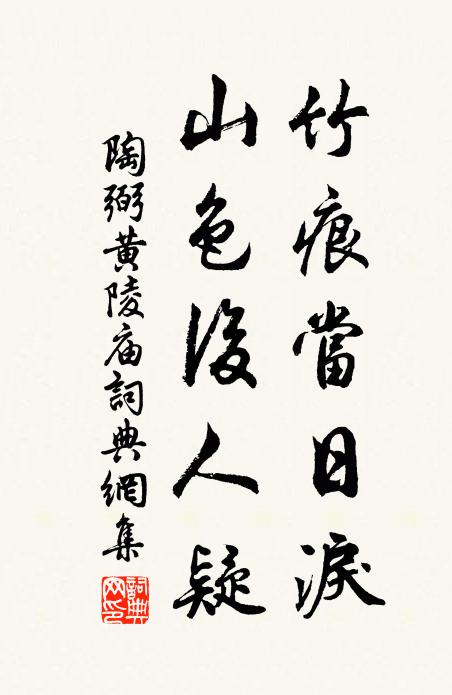 竹痕當日淚
山色後人疑
陶弼黄陵庙詞典網集
詞典網印